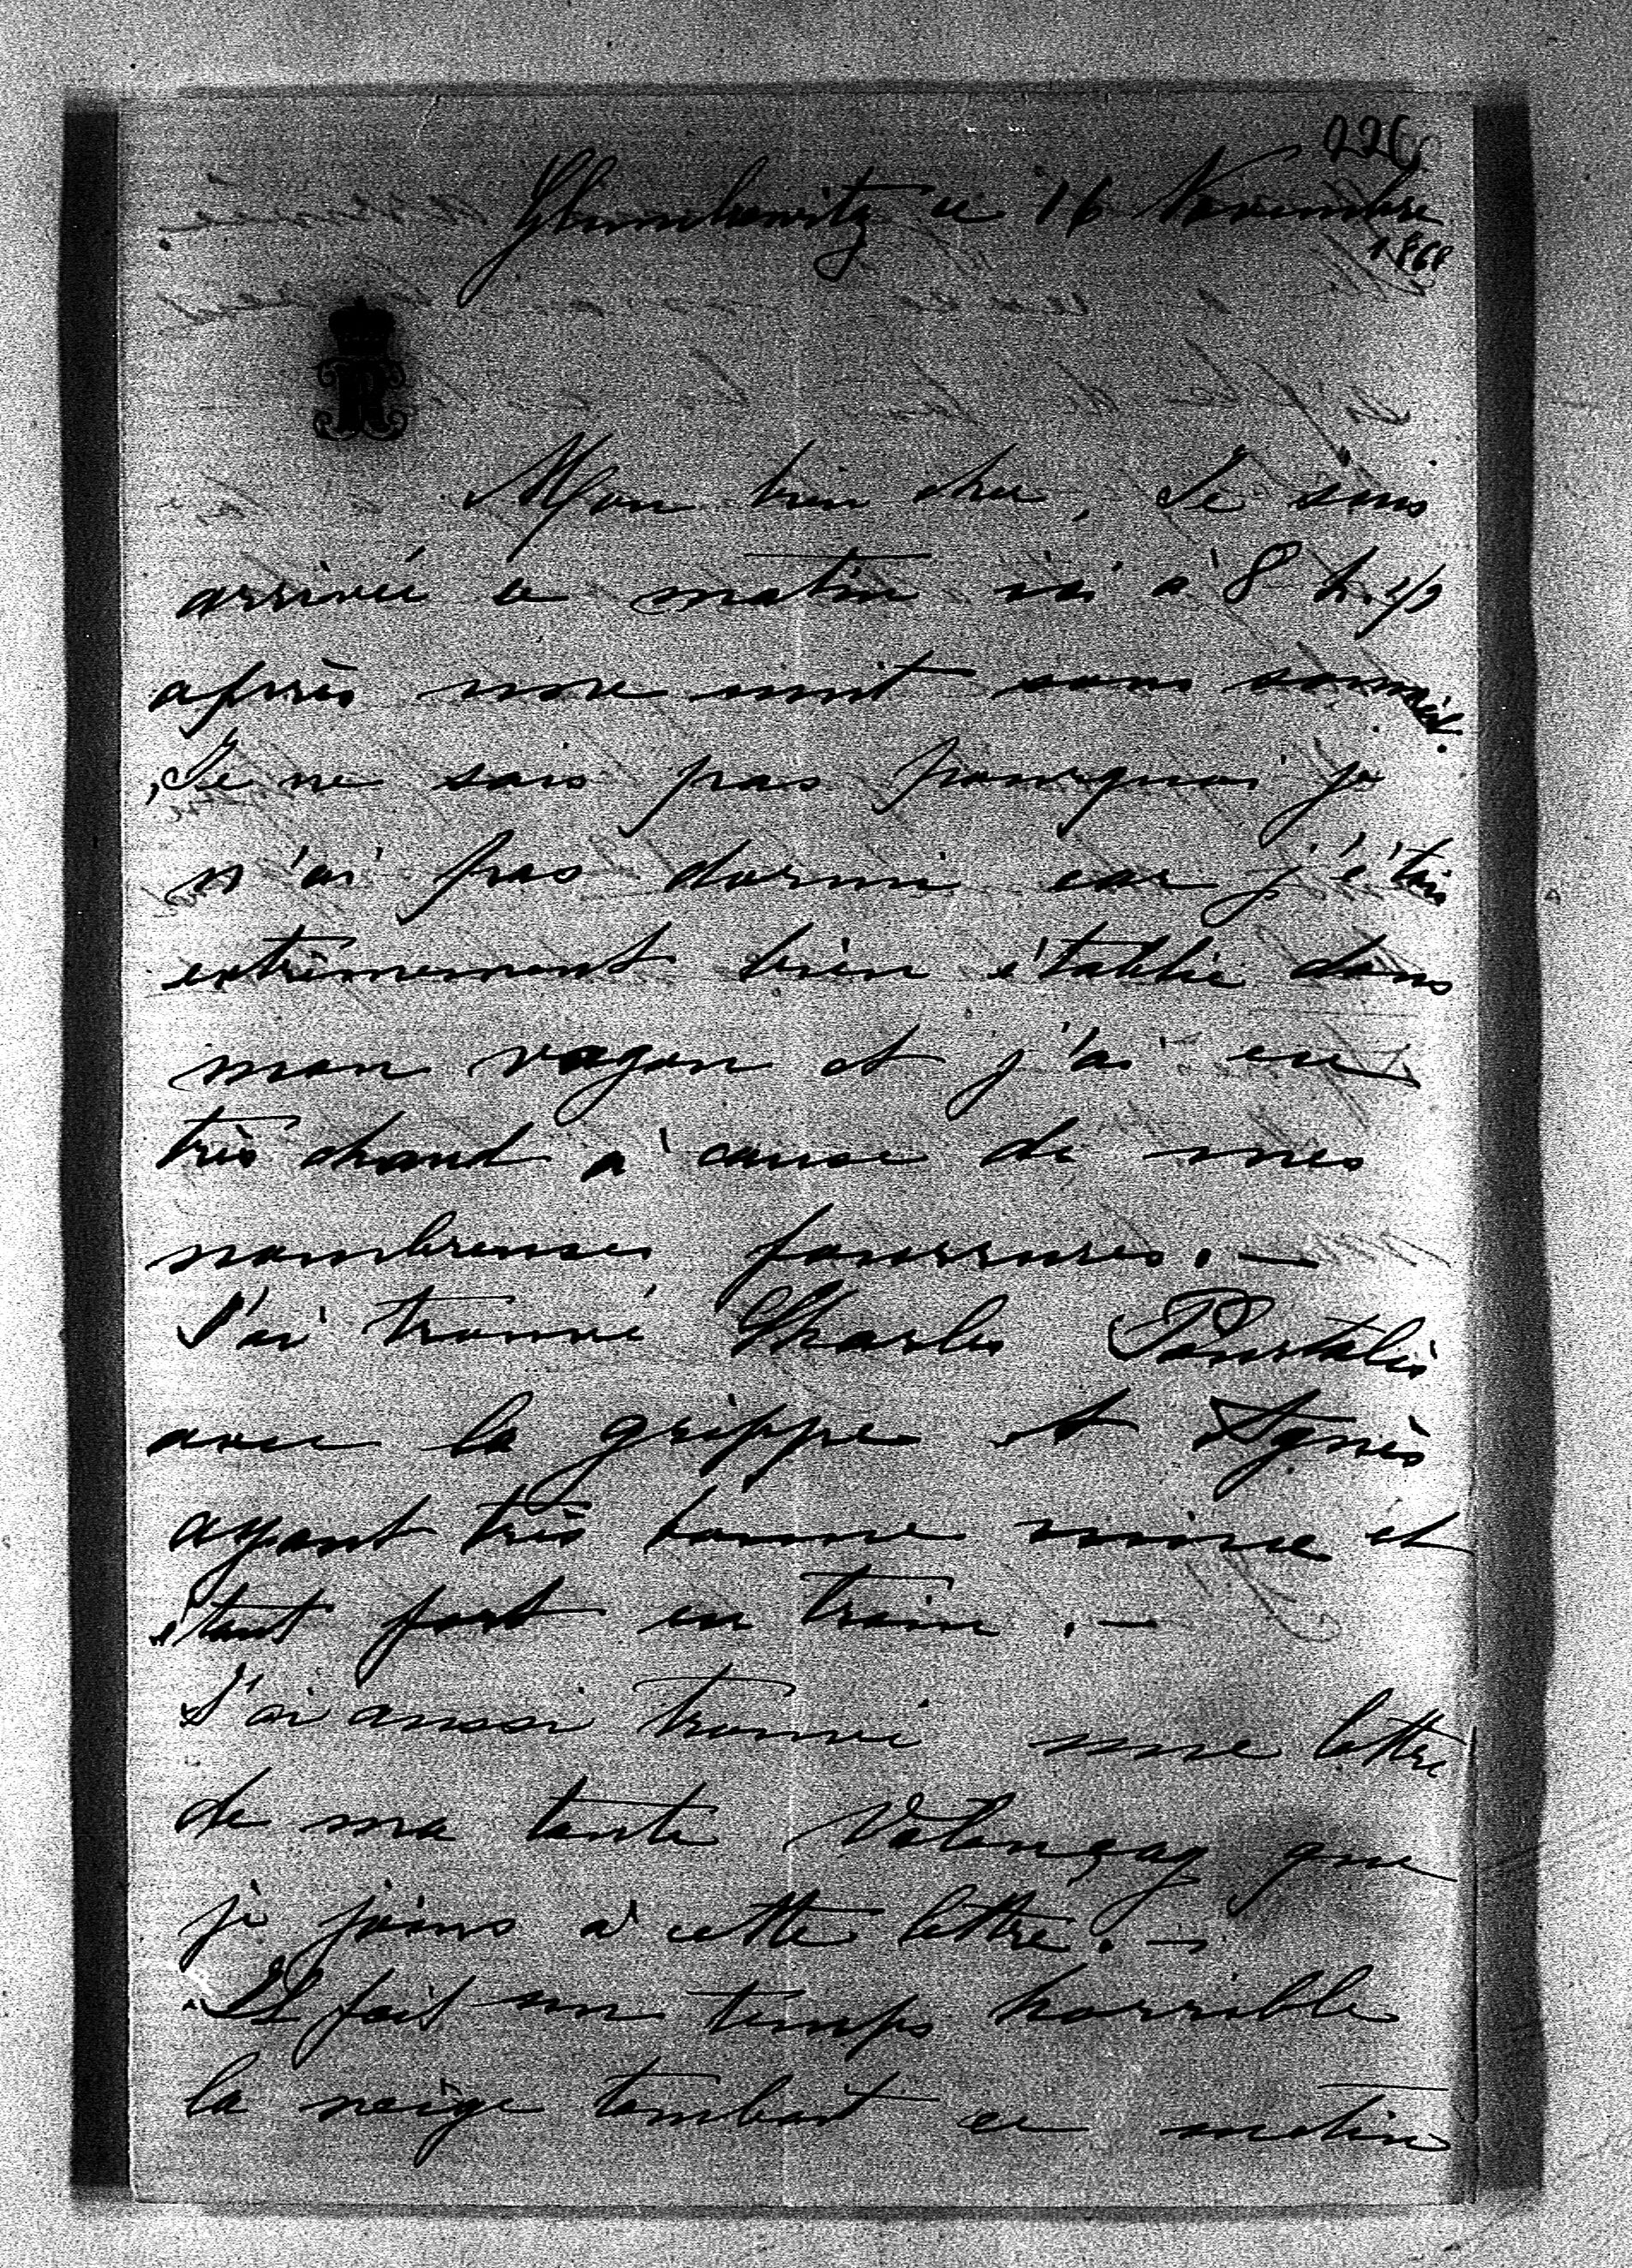 226
Ghumkowitz ce 16 Novembre
1868
R
Mon bien cher, Je suis
arrivée ce matin ici à 8 h. 1/2
après une nuit sans sommeil.
Je ne sais pas pourquoi je
n'ai pas dormi car j'étais
extrêmement bien établie dans
mon vagon et j'ai eu
très chaud à cause de mes
nombreuses fourrures. —
J'ai trouvé Charles Pourtalès
avec la grippe et Agnès
ayant très bonne mine et
étant fort en train. —
J'ai aussi trouvé une lettre
de ma tante Valençay que
je joins à cette lettre. —
Il fait un temps horrible
la neige tombait ce matin